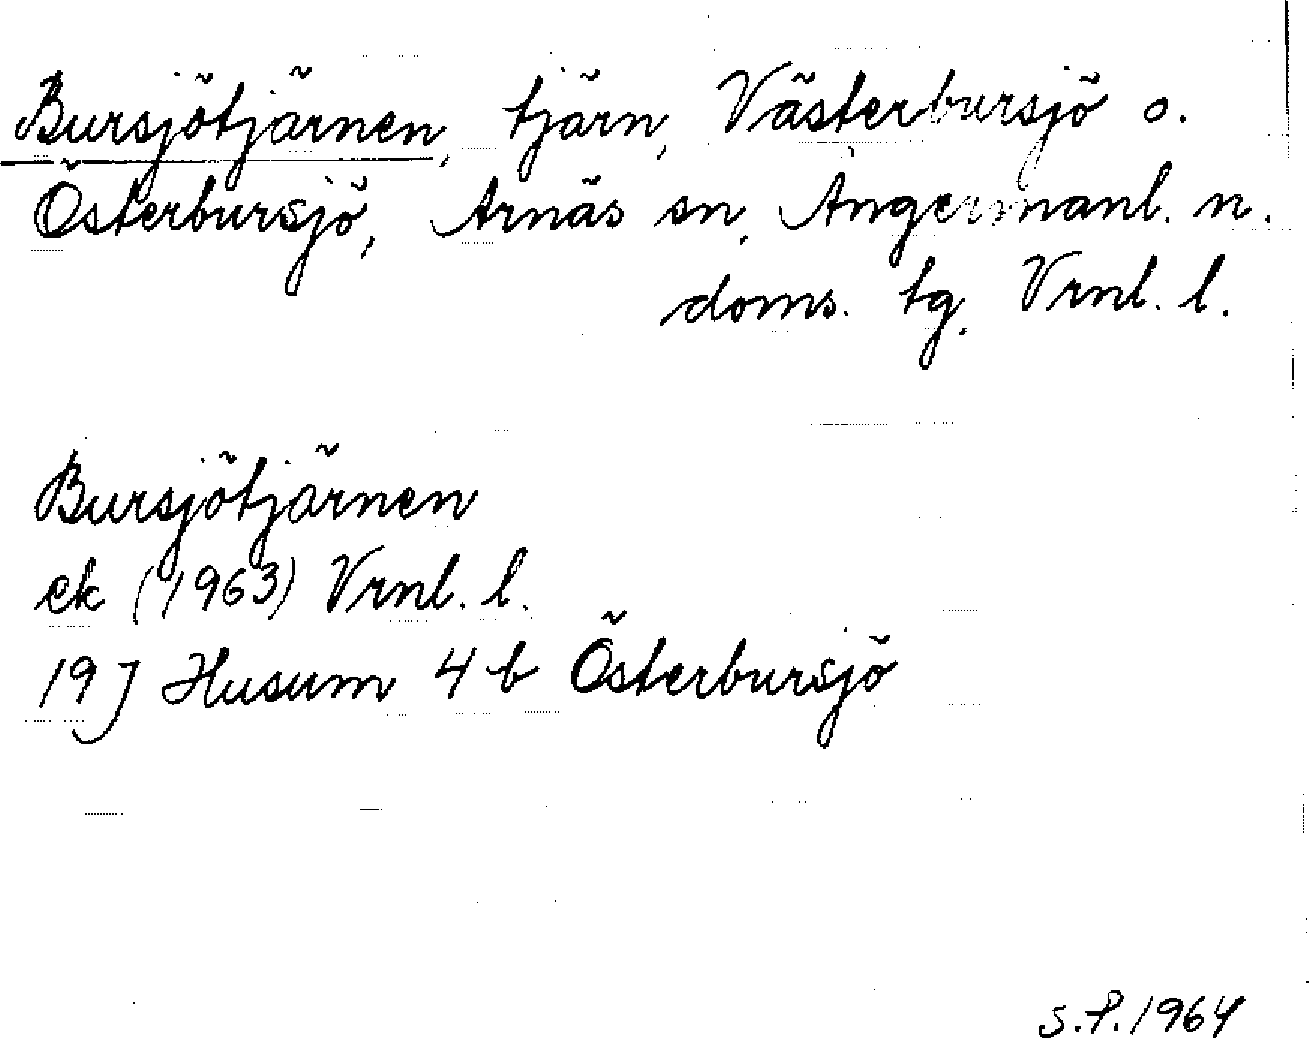 Bursjötjärnen, tjärn, Västerbursjö o.
Österbursjö, Arnäs sn, Ångermanl. n.
doms. tg. Vrnl. l.
Bursjötjärnen
ek (1963) Vrnl. l.
19J Husum 4 b Österbursjö
S.P. 1964